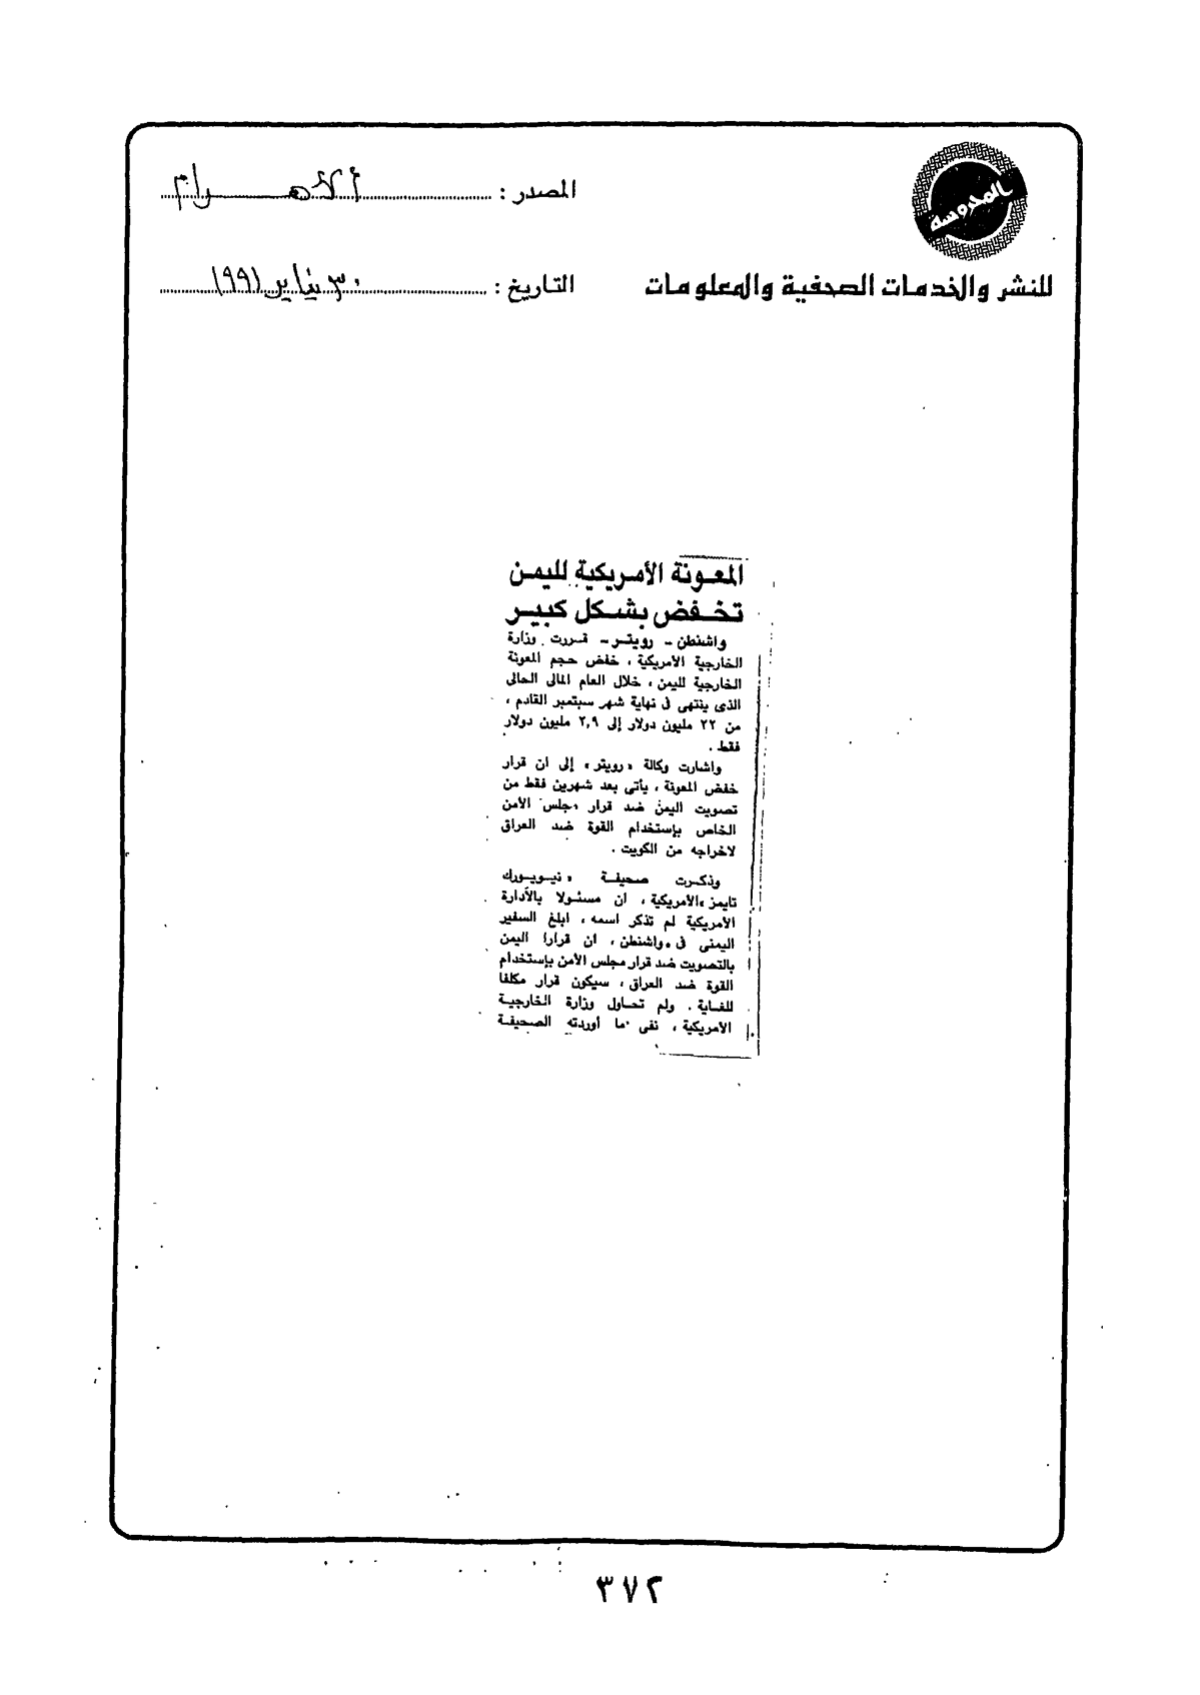 المحروسة
المصدر : الأهـــرام
للنشر والخدمات الصحفية والمعلومات
التاريخ : ٣٠ يناير ١٩٩١
المعـونة الأمـريكية لليمـن
تخـفض بشـكل كبيـر
واشنطن - رويتـر - قـررت وزارة
الخارجية الأمريكية ، خفض حجم المعونة
الخارجية لليمن ، خلال العام المالى الحالى
الذى ينتهى فى نهاية شهر سبتمبر القادم ،
من ٢٢ مليون دولار إلى ٢,٩ مليون دولار
فقط .
واشارت وكالة «رويتر» إلى ان قرار
خفض المعونة ، يأتى بعد شهرين فقط من
تصويت اليمن ضد قرار مجلس الأمن
الخاص بإستخدام القوة ضد العراق
لاخراجه من الكويت .
وذكـرت صحيفـة «نيـويـورك
تايمز»الأمريكية ، ان مسئـولا بالأدارة
الأمريكية لم تذكر اسمه ، ابلغ السفير
اليمنى فى واشنطن ، ان قرارا اليمن
بالتصويت ضد قرار مجلس الأمن بإستخدام
القوة ضد العراق ، سيكون قرار مكلفا
للغـاية . ولم تحـاول وزارة الخارجيـة
الأمريكية ، نفى ما أوردته الصحيفـة
٣٧٢